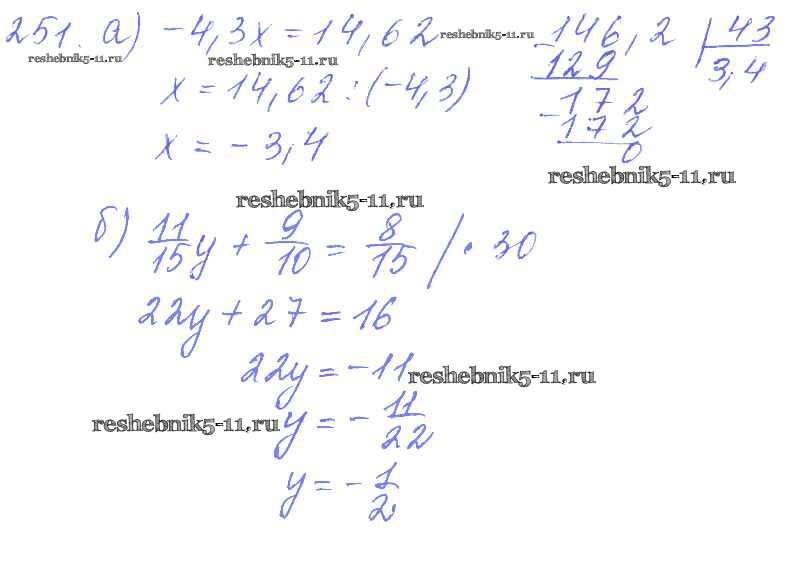 251. а) -4,3x = 14,62
reshebnik5-11.ru reshebnik5-11.ru reshebnik5-11.ru
x = 14,62 : (-4,3)
x = -3,4
- 146,2 | 43
129 3,4
- 172
172
0
reshebnik5-11.ru
reshebnik5-11.ru
б) 11/15 y + 9/10 = 8/15 / · 30
22y + 27 = 16
22y = -11
reshebnik5-11.ru
reshebnik5-11.ru
y = - 11/22
y = - 1/2